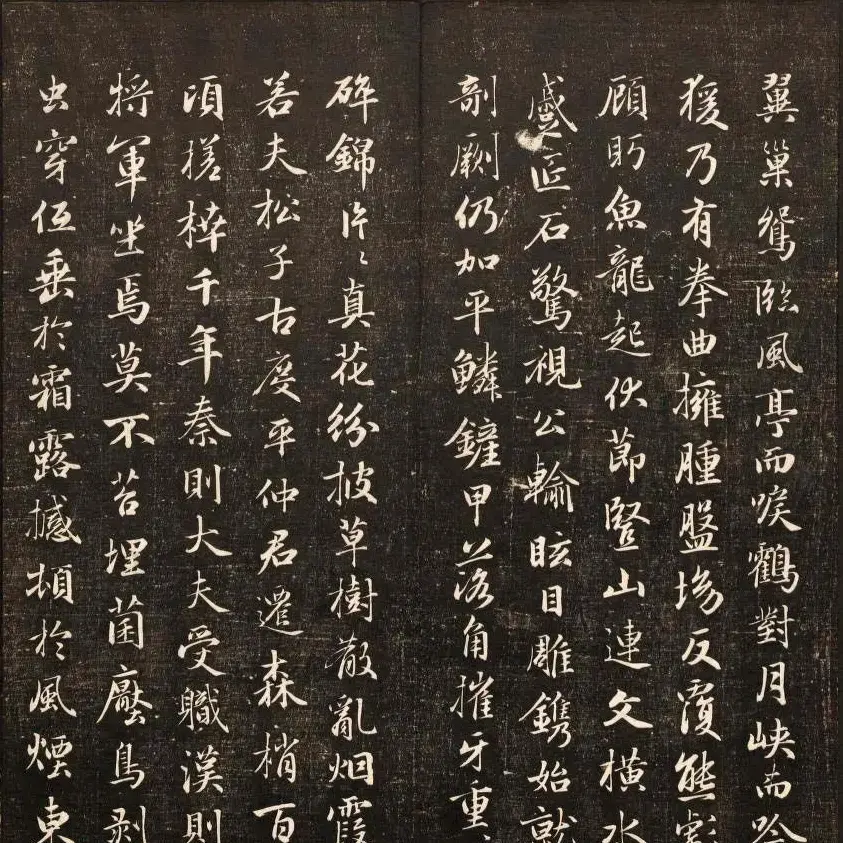 翼巢鴛臨風亭而唳鶴對月峽而吟
猨乃有拳曲擁腫盤坳反覆熊彪
顧眄魚龍起伏節豎山連文橫水
蹙匠石驚視公輸眩目雕鐫始就
剞劂仍加平鱗鏟甲落角摧牙重
碎錦片〻真花紛披草樹散亂烟霞
若夫松子古度平仲君遷森梢百
頃槎枿千年秦則大夫受職漢則
将軍坐焉莫不苔埋菌壓鳥剥
虫穿低垂於霜露撼頓於風煙東